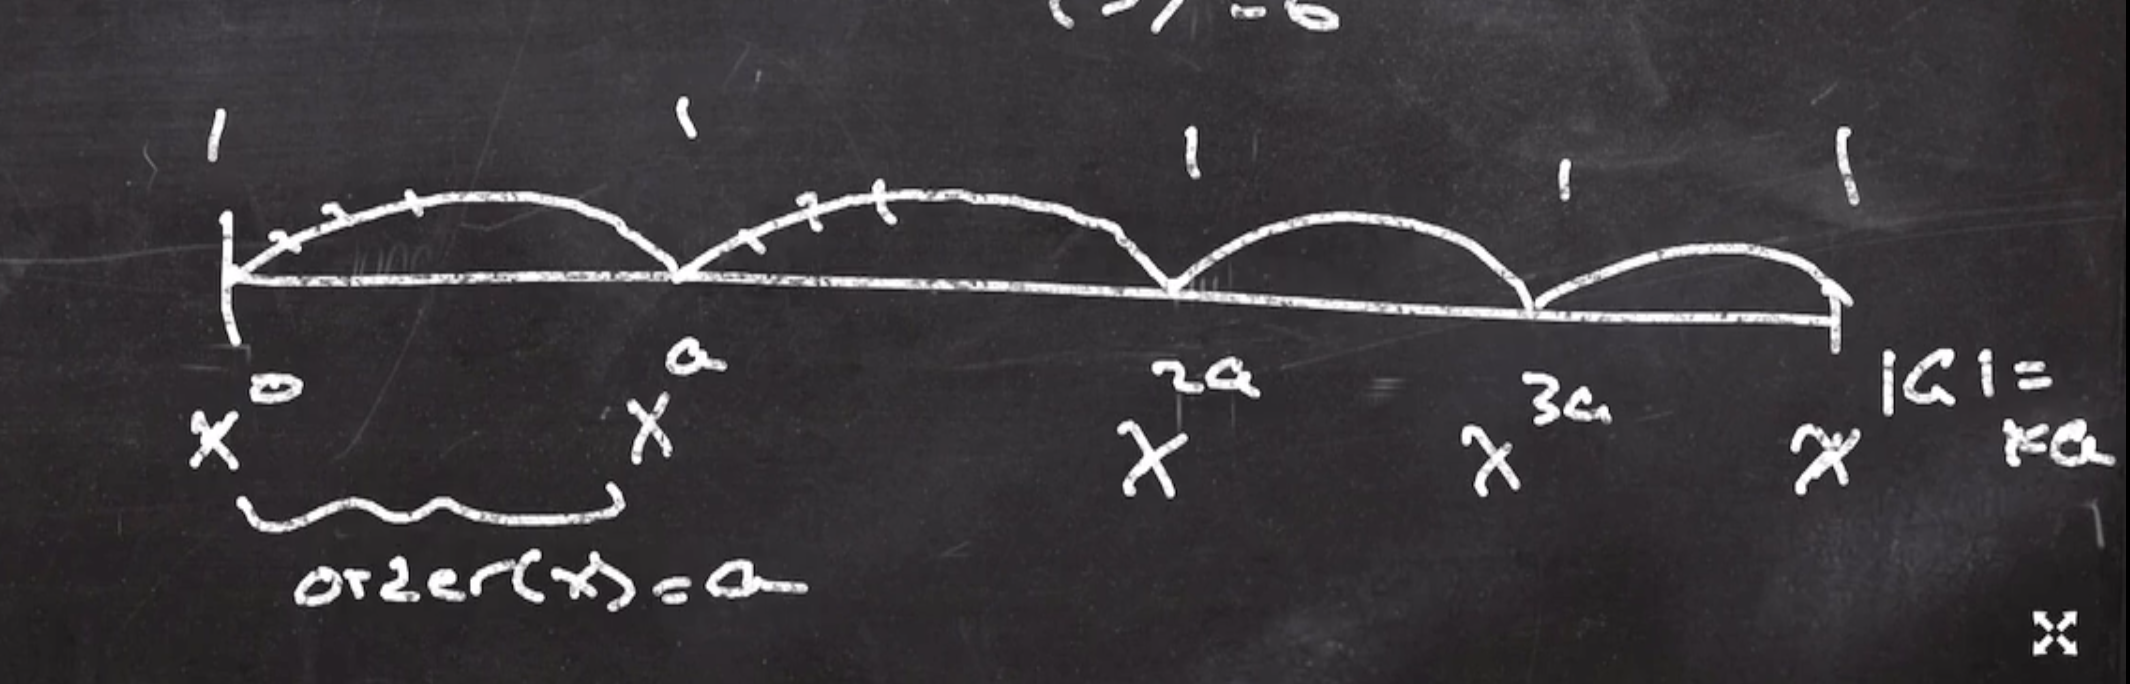 1 1 1 1 1
x^0 x^a x^2a x^3a x^|G|=
order(x)=a